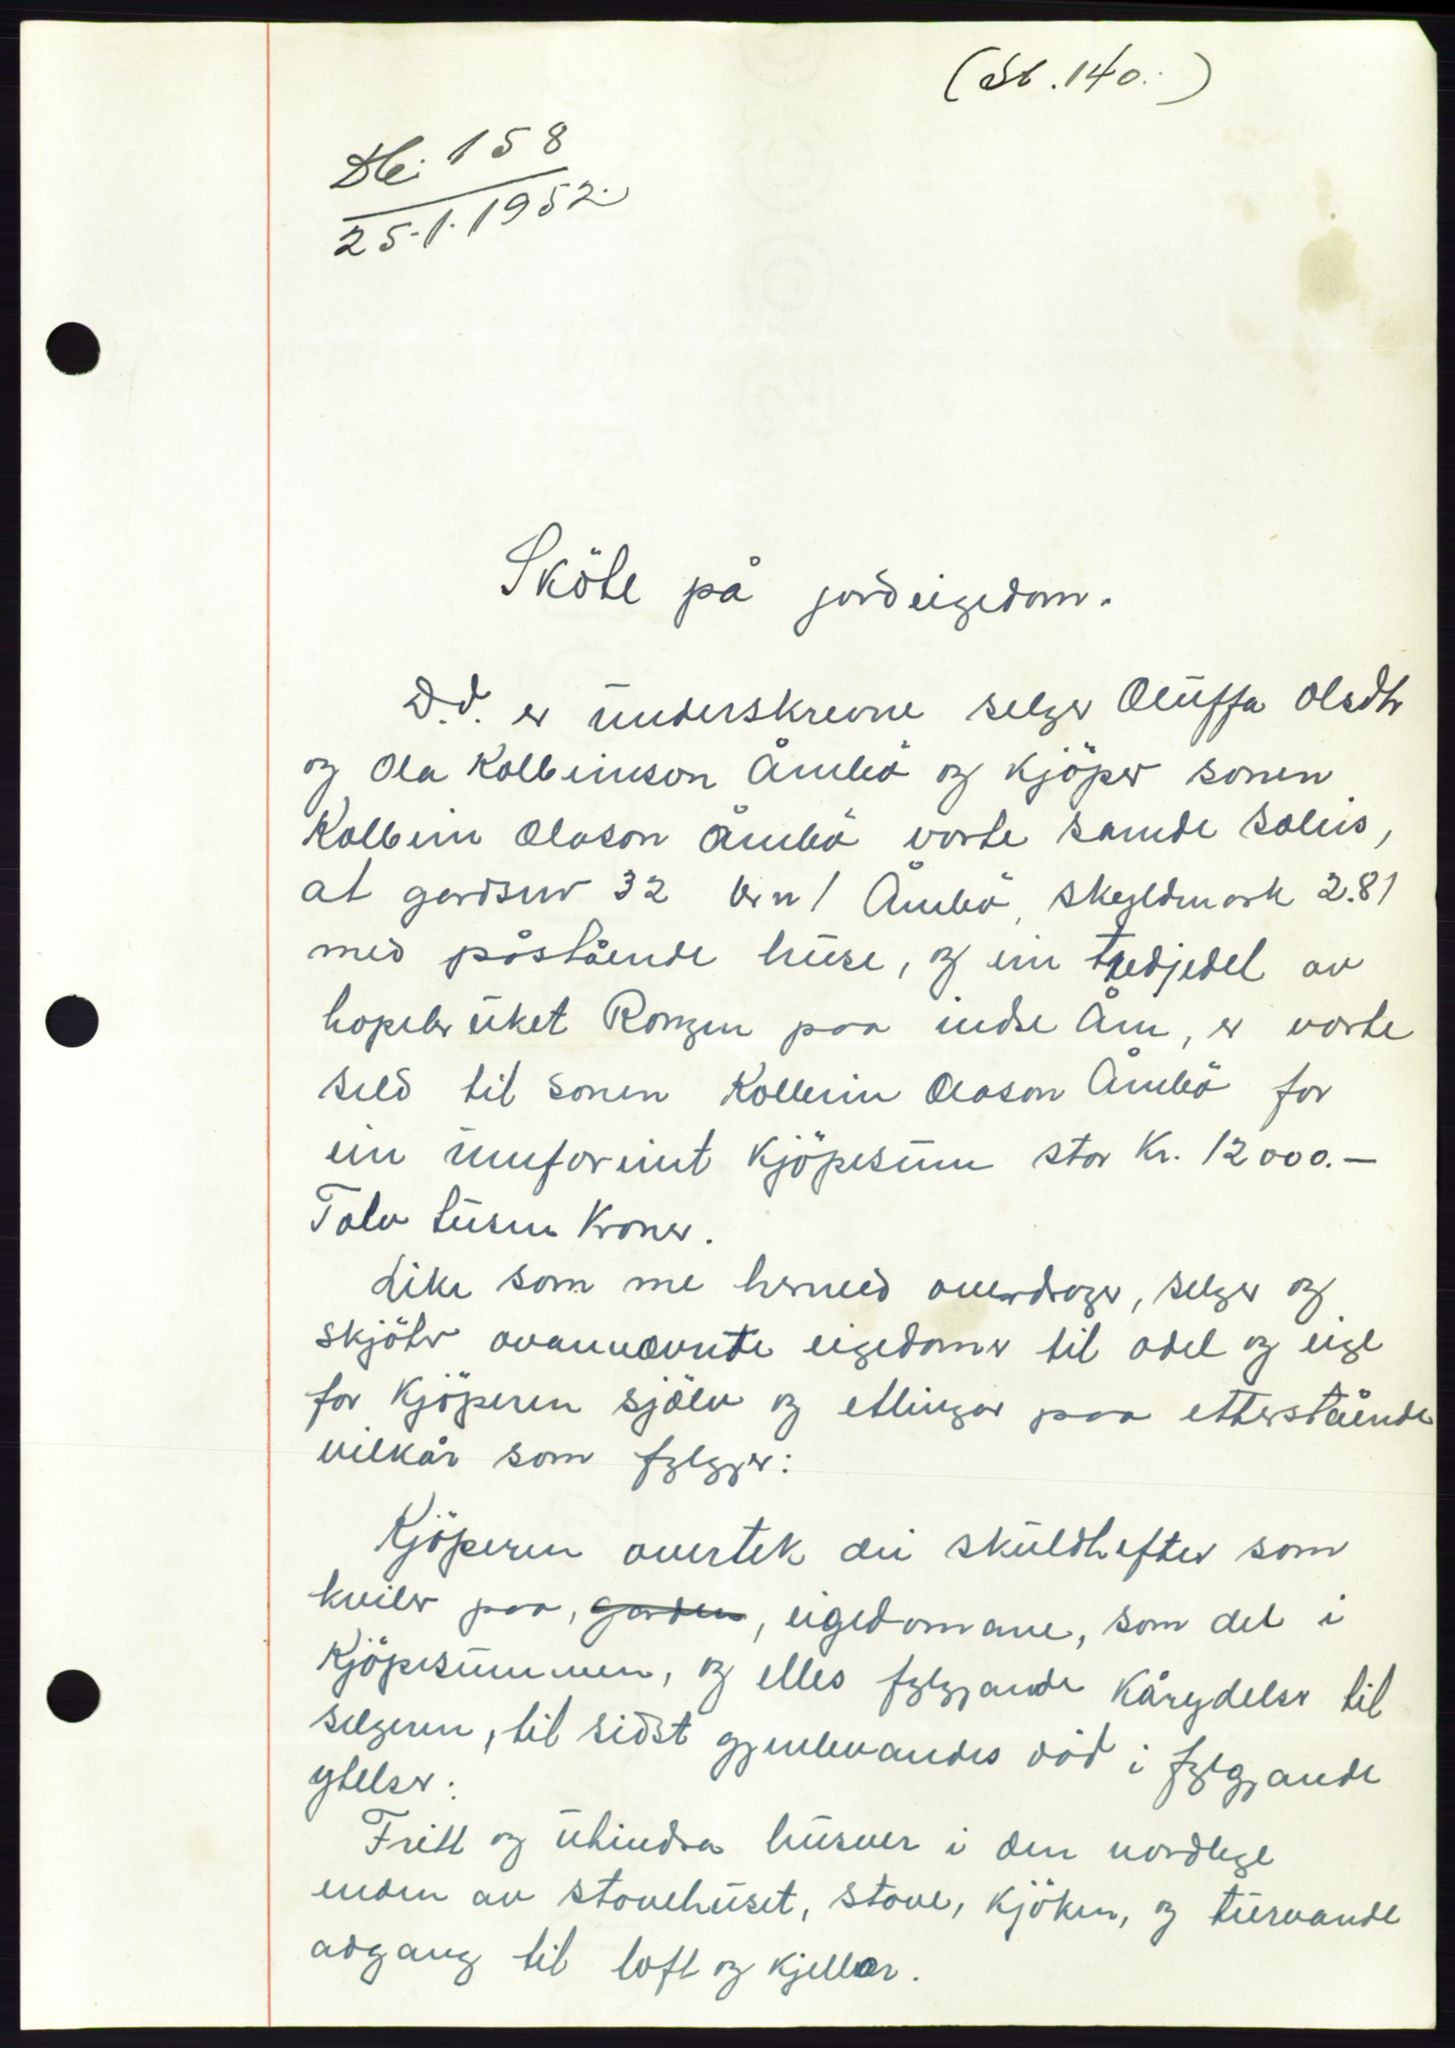 (St. 140.)
Db. 158
25.1.1952.
Sköte på jordeigedom.
D.d. er underskrevne selger Oluffa Olsdtr
og Ola Kolbeinson Åmbö og kjöper sonen
Kolbein Olason Åmbö vorte samde soleis,
at gardsnr 32 brn 1 Åmbö, skyldmark 2.81
med påstående huse, og ein tredjedel av
hopebruket Rongen paa indre Åm, er vorte
seld til sonen Kolbein Olason Åmbö for
ein umforeint kjöpesum stor Kr. 12000.—
Tolv tusen kroner.
Like som me hermed overdrager, selger og
skjöter ovannævnte eigedomer til odel og eige
for kjöperen sjölv og ettlingar paa etterstående
vilkår som fylgjer:
Kjöperen overtek dei skuldhefter som
kviler paa, garden, eigedomane, som del i
kjöpesummen, og elles fylgjande kårydelser til
selgeren, til sidst gjenlevandes död i fylgjande
ytelser:
Fritt og uhindra husver i den nordlege
enden av stovehuset, stove, kjöken, og turvande
adgang til loft og kjellar.